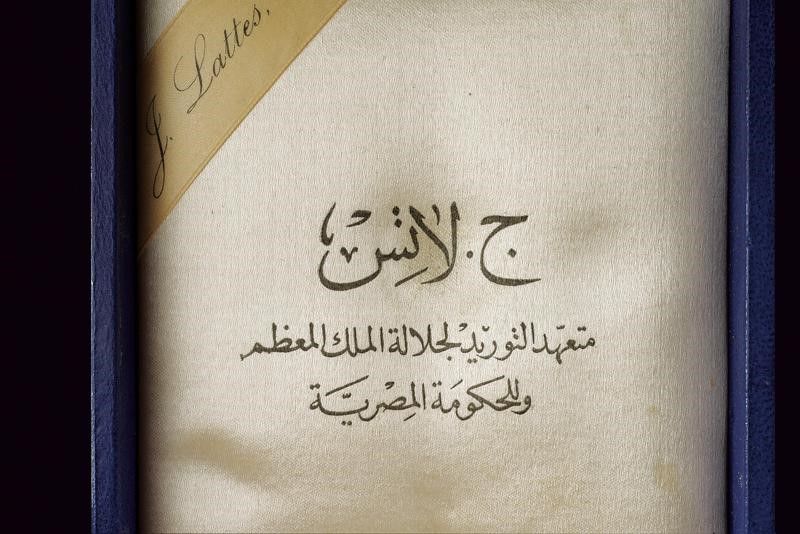 J. Lattes.
ج. لاتِسْ
متعهّد التوريدْ لجلالة الملك المعظم
وللحكومَة المِصْريَّة